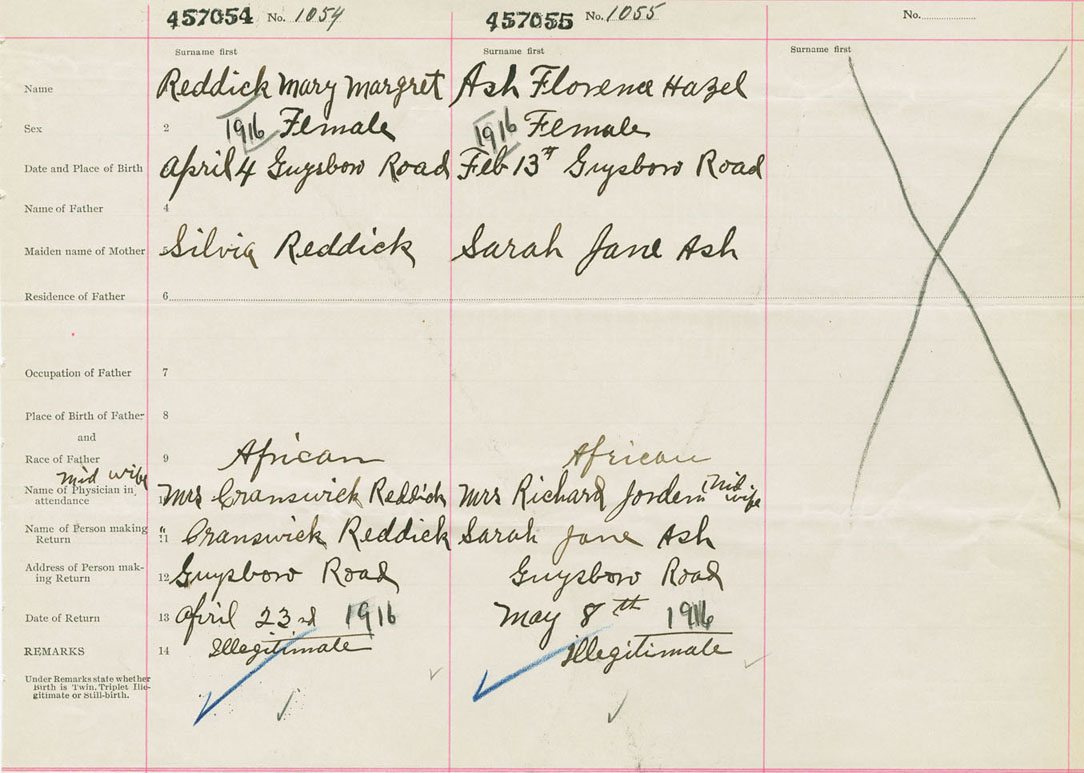 457054 No. 1054 457055 No. 1055 No.
Surname first Surname first Surname first
Name Reddick Mary Margret Ash Florence Hazel
Sex 2 1916 Female 1916 Female
Date and Place of Birth April 4 Guysboro Road Feb 13th Guysboro Road
Name of Father 4
Maiden name of Mother 5 Silvia Reddick Sarah Jane Ash
Residence of Father 6
Occupation of Father 7
Place of Birth of Father 8
and
Race of Father 9 African African
mid wife
Name of Physician in
attendance Mrs Cranswick Reddick Mrs Richard Jordem Mid wife
Name of Person making
Return 11 Cranswick Reddick Sarah Jane Ash
Address of Person mak-
ing Return 12 Guysboro Road Guysboro Road
Date of Return 13 April 23rd 1916 May 8th 1916
REMARKS 14 Illegitimate Illegitimate
Under Remarks state whether
Birth is Twin, Triplet Ille-
gitimate or Still-birth.